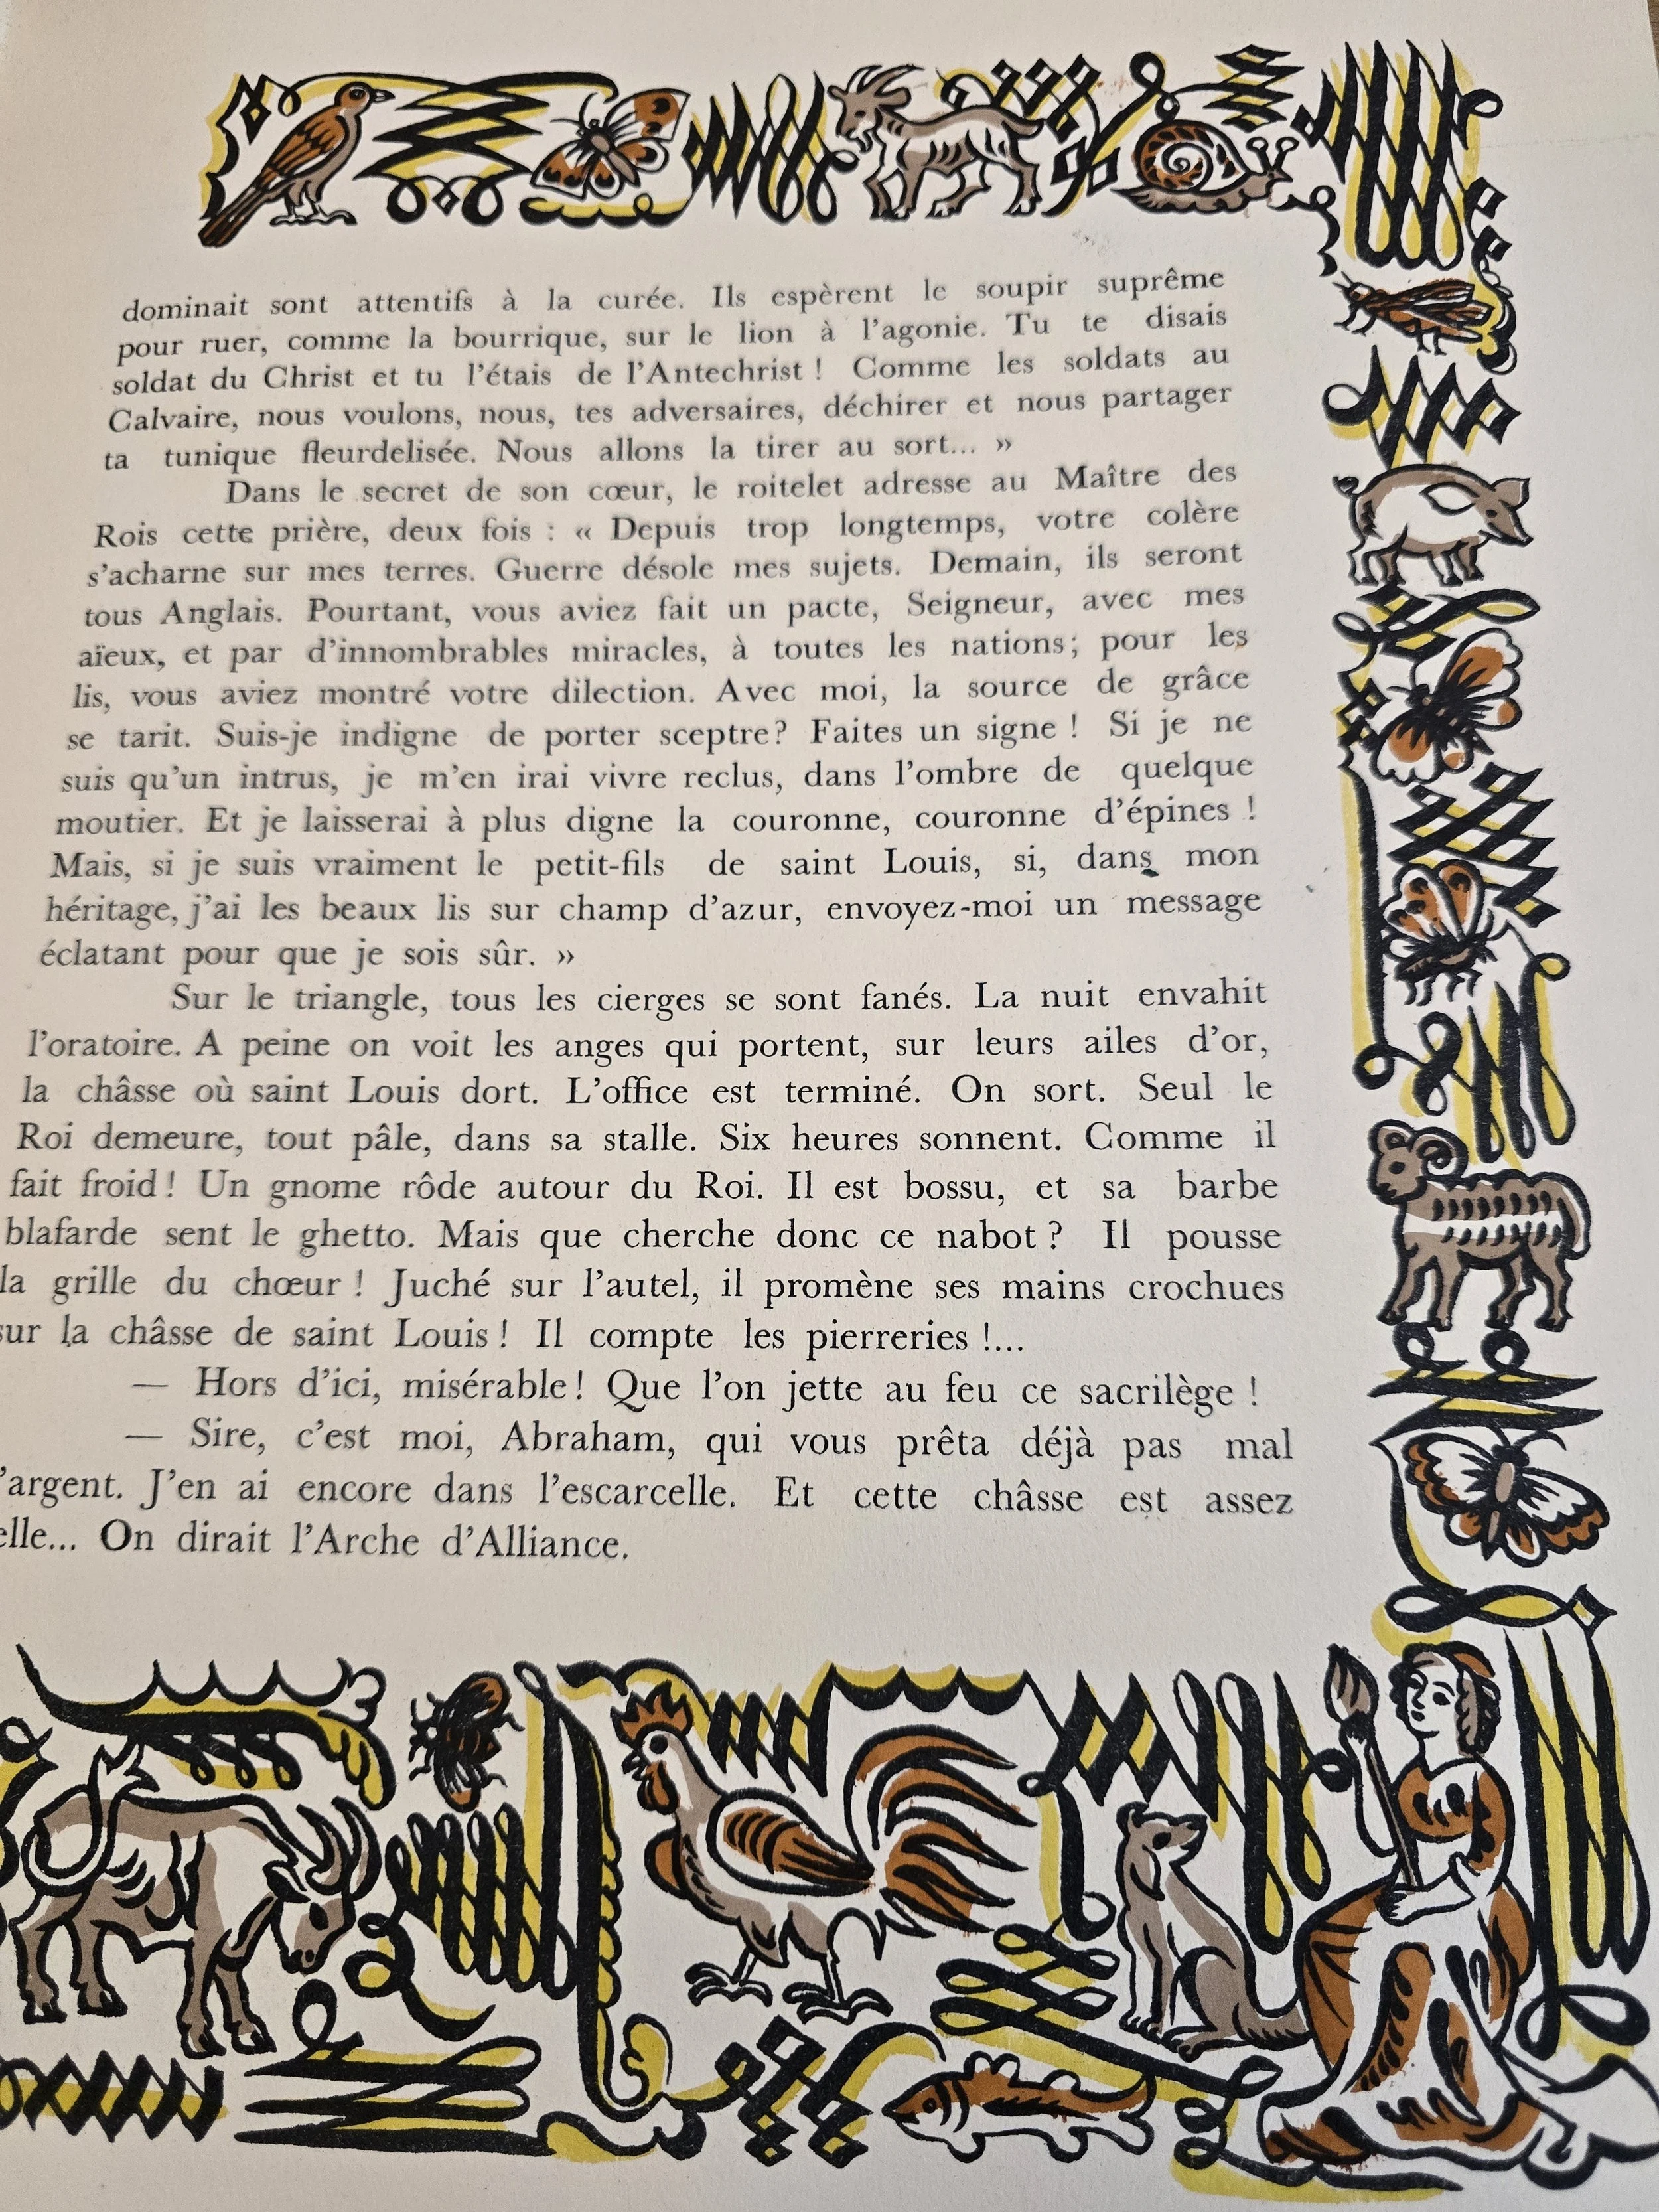 dominait sont attentifs à la curée. Ils espèrent le soupir suprême
pour ruer, comme la bourrique, sur le lion à l'agonie. Tu te disais
soldat du Christ et tu l'étais de l'Antechrist ! Comme les soldats au
Calvaire, nous voulons, nous, tes adversaires, déchirer et nous partager
ta tunique fleurdelisée. Nous allons la tirer au sort... »
Dans le secret de son cœur, le roitelet adresse au Maître des
Rois cette prière, deux fois : « Depuis trop longtemps, votre colère
s'acharne sur mes terres. Guerre désole mes sujets. Demain, ils seront
tous Anglais. Pourtant, vous aviez fait un pacte, Seigneur, avec mes
aïeux, et par d'innombrables miracles, à toutes les nations; pour les
lis, vous aviez montré votre dilection. Avec moi, la source de grâce
se tarit. Suis-je indigne de porter sceptre? Faites un signe ! Si je ne
suis qu'un intrus, je m'en irai vivre reclus, dans l'ombre de quelque
moutier. Et je laisserai à plus digne la couronne, couronne d'épines !
Mais, si je suis vraiment le petit-fils de saint Louis, si, dans mon
héritage, j'ai les beaux lis sur champ d'azur, envoyez-moi un message
éclatant pour que je sois sûr. »
Sur le triangle, tous les cierges se sont fanés. La nuit envahit
l'oratoire. A peine on voit les anges qui portent, sur leurs ailes d'or,
la châsse où saint Louis dort. L'office est terminé. On sort. Seul le
Roi demeure, tout pâle, dans sa stalle. Six heures sonnent. Comme il
fait froid ! Un gnome rôde autour du Roi. Il est bossu, et sa barbe
blafarde sent le ghetto. Mais que cherche donc ce nabot ? Il pousse
la grille du chœur ! Juché sur l'autel, il promène ses mains crochues
sur la châsse de saint Louis ! Il compte les pierreries !...
— Hors d'ici, misérable ! Que l'on jette au feu ce sacrilège !
— Sire, c'est moi, Abraham, qui vous prêta déjà pas mal
'argent. J'en ai encore dans l'escarcelle. Et cette châsse est assez
elle... On dirait l'Arche d'Alliance.